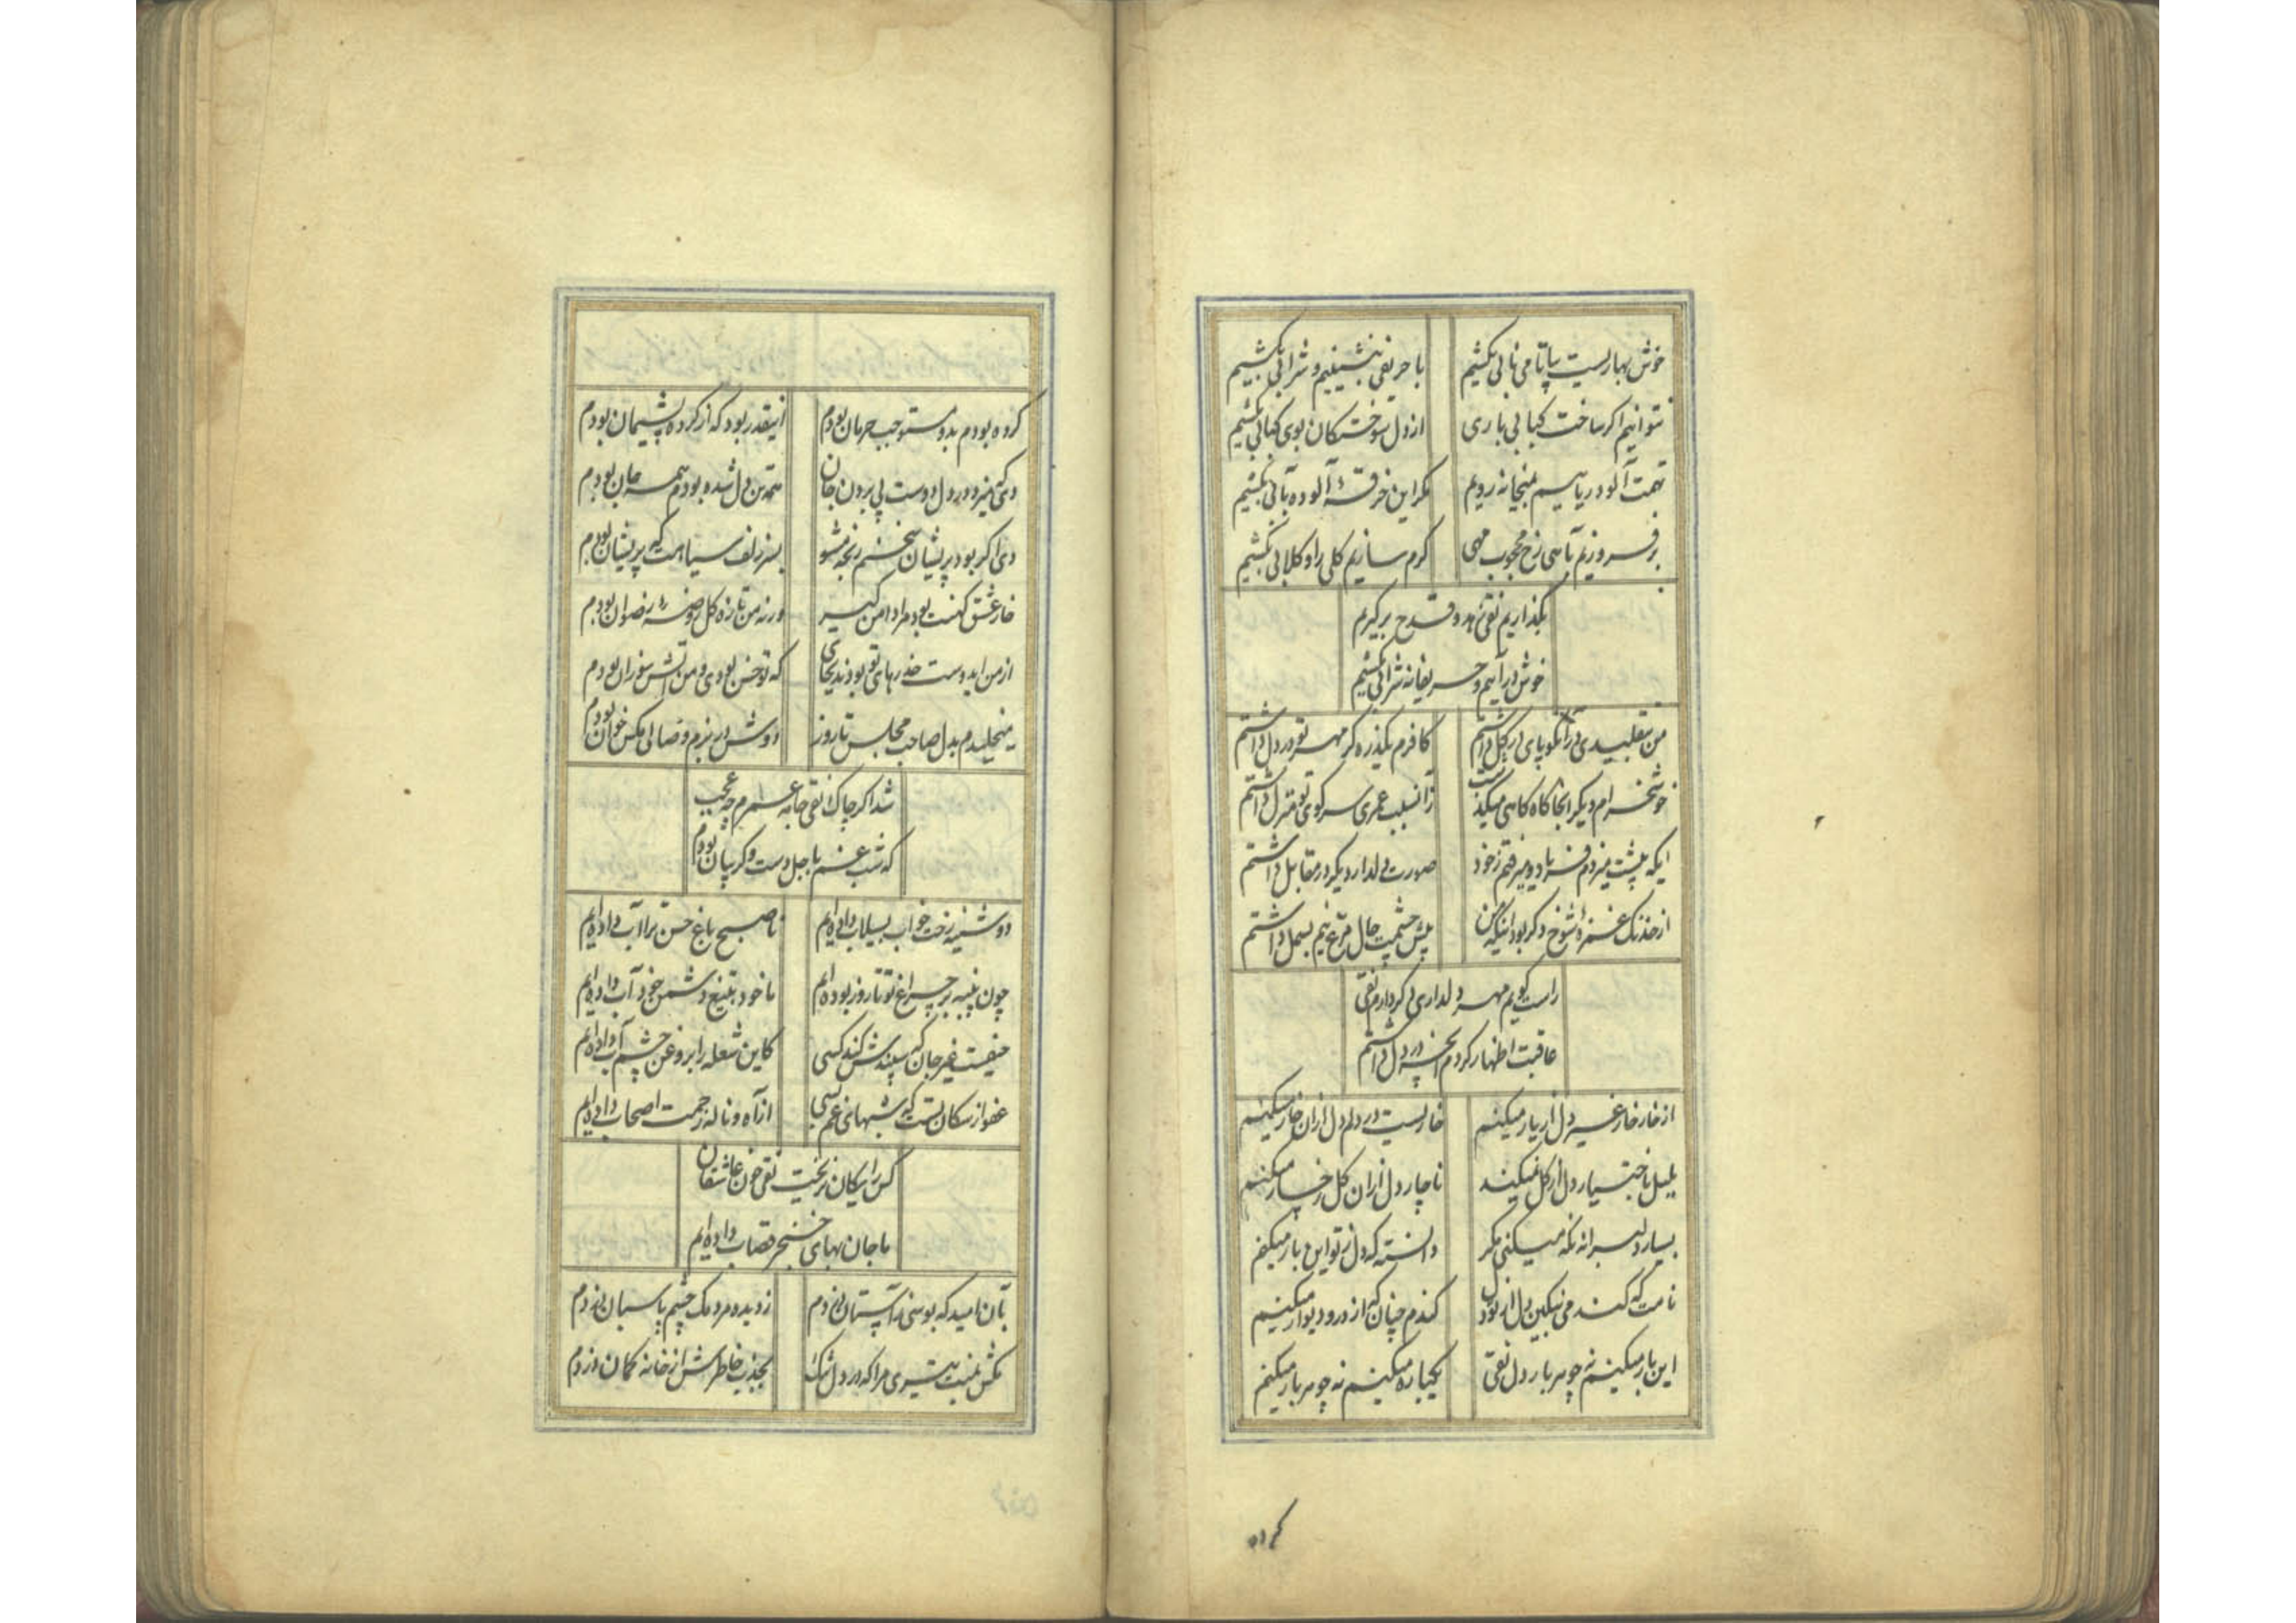 خوش بهاریست بیا تا می نابی بکشیم
با حریفی بنشینیم و شرابی بکشیم
نتوانیم اگر ساخت کبابی باری
از دل سوختگان بوی کبابی بکشیم
تهمت آلود ریاییم بمیخانه رویم
مگر این خرقهٔ آلوده بآبی بکشیم
برفروزیم بآهی رخ محجوب مهی
گرم سازیم گلی را و گلابی بکشیم
بگذاریم نقی زهد و قدح برگیریم
خوش درآییم و حریفانه شرابی بکشیم
من بتقلیدی در آن کو پای در گل داشتم
کافرم یکذره گر مهر تو در دل داشتم
خوشخرام دیگر آنجا گاه گاهی میگذشت
زان سبب عمری سر کوی تو منزل داشتم
ایکه پیشت میزدم فریاد و میرفتم ز خود
صورت دلدار دیگر در مقابل داشتم
از خدنگ غمزهٔ شوخ دگر بود اینکه من
پیش چشمت حال مرغ نیم بسمل داشتم
راست گویم مهر دلداری دگر دارم نقی
عاقبت اظهار کردم آنچه در دل داشتم
از خار خار غیر دل از یار میکنم
خاریست در دلم دل از آن خار میکنم
بلبل باختیار دل از گل نمیکند
ناچار دل از آن گل رخسار میکنم
بسیار دلبرانه نگه میکنی مگر
دانسته که دل ز تو این بار میکنم
نامت که کنده می نکین دل از تو دل
کندم چنان که از در و دیوار میکنم
این بار میکنم نه چو هر بار دل نقی
یکباره میکنم نه چو هر بار میکنم
کرده
کرده بودم بد و مستوجب حرمان بودم
اینقدر بود که از کرده پشیمان بودم
دی که میزد در دل دوست پی بردن جان
همه تن دل شده بودم همه جان بودم
دی اگر بود پریشان سخنم رنجه مشو
بسر زلف سیاهت که پریشان بودم
خار عشق کهنت بود مرا دامن گیر
ورنه من تازه گل روضهٔ رضوان بودم
از من ایدوست حذرهای تو بودند بجای
که تو خس بودی و من آتش سوزان بودم
میخلیدم بدل صاحب مجلس تا روز
دوش در بزم وصالی مگس خوان بودم
شد اگر چاک نقی جامه عمرم چه عجب
که شب غم باجل دست و گریبان بودم
دوشینه رخت خواب بسیلاب داده‌ایم
تا صبح باغ حسن ترا آب داده‌ایم
چون پنبه بر چراغ تو تا روز بوده‌ایم
ما خود بتیغ دشمن خود آب داده‌ایم
حیفست غیر جان که سپندش کند کسی
کاین شعله را بروغن چشم آب داده‌ایم
عفو از سگان تست که شبهای غم بسی
از آه و ناله زحمت اصحاب داده‌ایم
کس رایگان نریخت نقی خون عاشقان
ما جان بهای خنجر قصاب داده‌ایم
بآن امید که بوسی بر آستان دزدم
ز دیده مردمک چشم پاسبان دزدم
بکش بمنت تیری مرا که در دل تنگ
بجذب خاطرش از خانه کمان دزدم